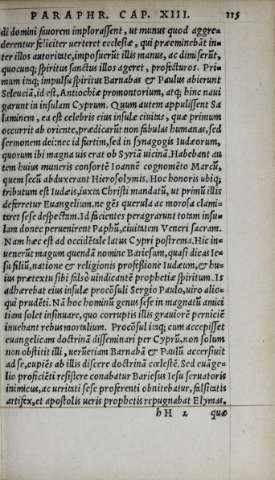 PARAPHR. CAP. XIII. 115
di domini fauorem implorassent, ut munus quod aggre-
derentur feliciter uerteret ecclesiæ, qui præeminebāt in-
ter illos autoritate, imposuerūt illis manus, ac dimiserūt,
quocunq; spiritus sanctus illos ageret, profecturos. Pri-
mum itaq; impulsu spiritus Barnabas & Paulus abierunt
Seleuciā, id est, Antiochiæ promontorium, atq; hinc naui
garunt in insulam Cyprum. Quum autem appulissent Sa
laminem, ea est celebris eius insulæ ciuitas, quæ primum
occurrit ab oriente, prædicarūt non fabulas humanas, sed
sermonem dei: nec id furtim, sed in synagogis Iudæorum,
quorum ibi magna uis erat ob Syriā uicinā. Habebant au
tem huius muneris consortē Ioannē cognomēto Marcū,
quem secū abduxerant Hierosolymis. Hoc honoris ubiq;
tributum est Iudæis, iuxta Christi mandatū, ut primū illis
deferretur Euangelium, ne gēs querula ac morosa clami-
taret sese despectam. Id facientes peragrarunt totam insu-
lam donec peruenirent Paphū, ciuitatem Veneri sacram.
Nam hæc est ad occidētale latus Cypri postrema. Hic in-
uenerūt magum quendā nomine Bariesum, quasi dicas Ie-
su filiū, natione & religionis professione Iudæum, & hu-
ius prætextu sibi falsò uindicantē prophetiæ spiritum. Is
adhærebat eius insulæ procōsuli Sergio Paulo, uiro alio-
qui prudēti. Nā hoc hominū genus sese in magnatū amici
tiam solet insinuare, quo corruptis illis grauiorē perniciē
inuehant rebus mortalium. Procōsul itaq; cum accepisset
euangelicam doctrinā disseminari per Cyprū, non solum
non obstitit illi, uerùm etiam Barnabā & Paulū accersiuit
ad se, cupiēs ab illis discere doctrinā cœlestē. Sed euāge-
lio proficiēti resistere conabatur Bariesus Iesu seruatoris
inimicus, ac ueritati sese proferenti obnitebatur, falsitatis
artifex, et apostolis ueris prophetis repugnabat Elymas,
h H 2 quæ